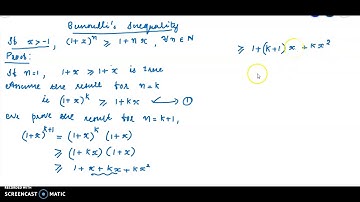 Bernoulli's Inequality
If x > -1, (1+x)^n ≥ 1+nx, ∀ n ∈ N
Proof:
If n=1, 1+x ≥ 1+x is true
Assume the result for n=k
is (1+x)^k ≥ 1+kx → ①
we prove the result for n=k+1,
(1+x)^{k+1} = (1+x)^k (1+x)
≥ (1+kx) (1+x)
≥ 1+x+kx+kx²
≥ 1+(k+1)x+kx²
RECORDED WITH
SCREENCAST-O-MATIC